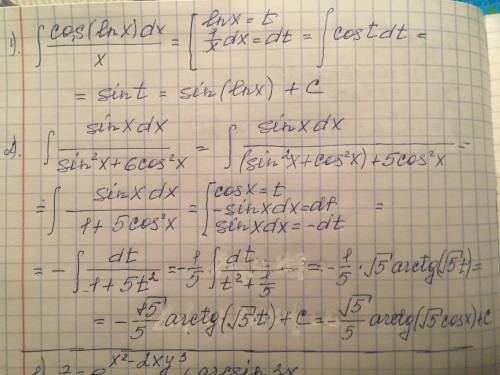 1). ∫ cos(lnx)dx / x = [ lnx = t ; 1/x dx = dt = ∫ cost dt =
= sint = sin(lnx) + C
2). ∫ sinx dx / sin²x + 6cos²x = ∫ sinx dx / (sin²x + cos²x) + 5cos²x =
= ∫ sinx dx / 1 + 5cos²x = [ cosx = t ; -sinxdx = dt ; sinxdx = -dt =
= - ∫ dt / 1 + 5t² = - 1/5 ∫ dt / t² + 1/5 = - 1/5 · √5 arctg(√5t) =
= - √5/5 arctg(√5 · t) + C = - √5/5 arctg(√5 cosx) + C